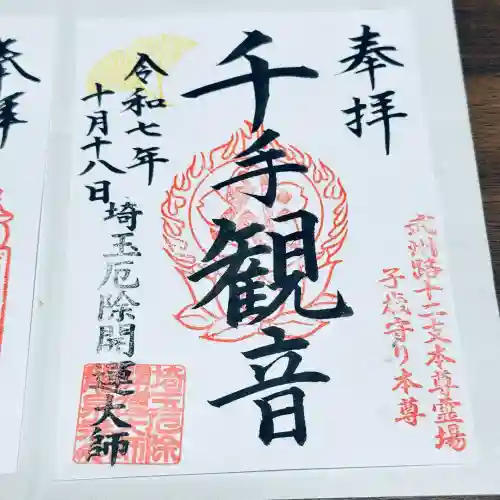 奉拝
武州路十二支本尊霊場
子歳守り本尊
千手観音
令和七年
十月十八日
埼玉厄除開運大師
奉拝